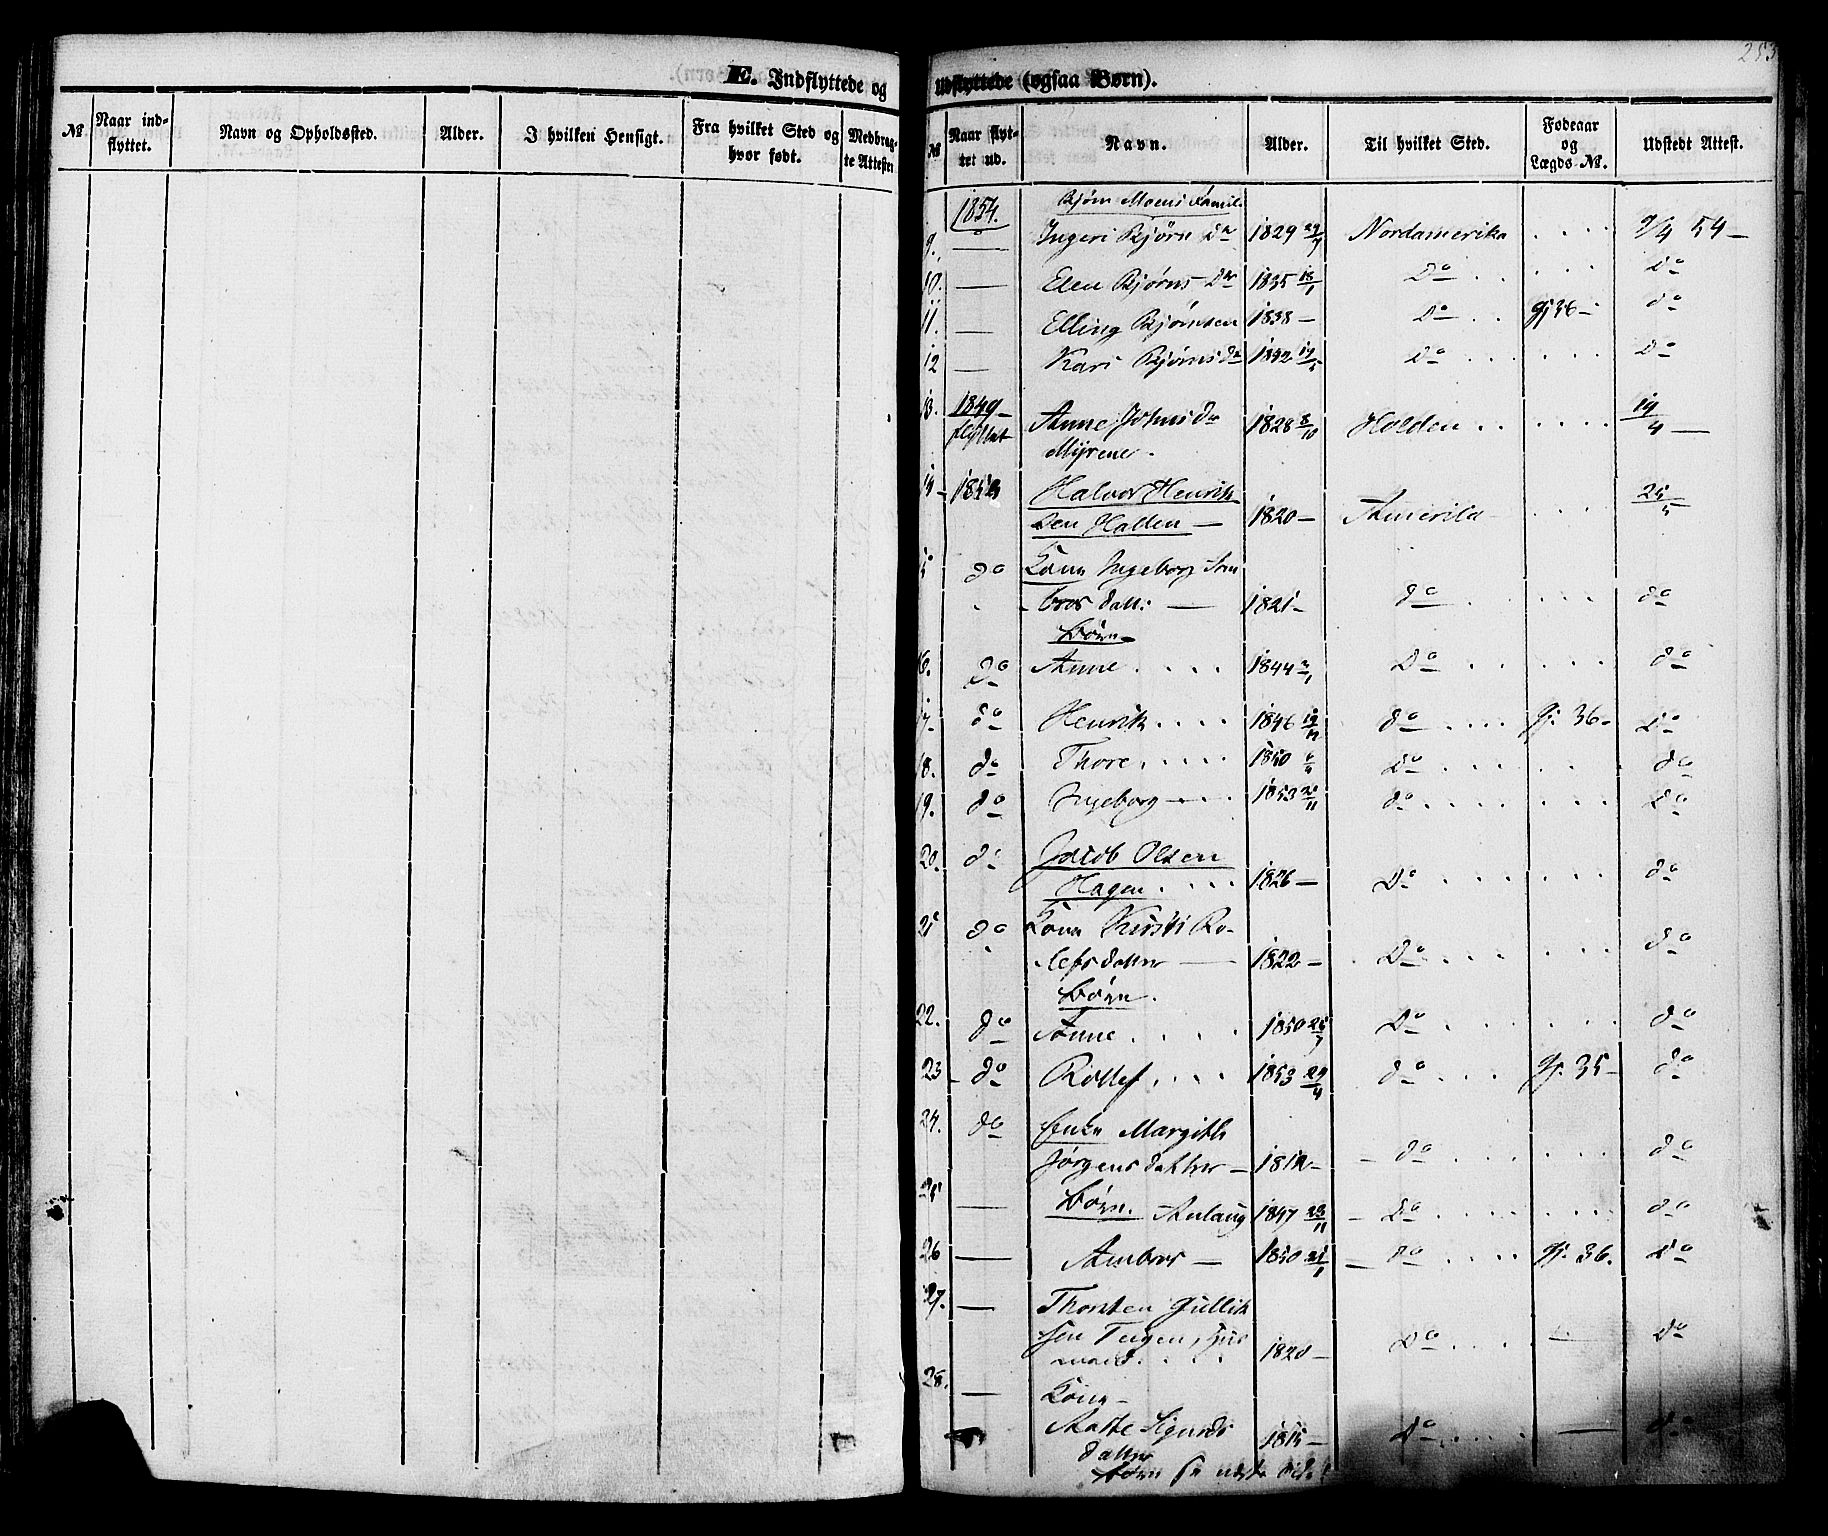 253
E. Indflyttede og
Udflyttede (ogsaa Børn).
№
Naar ind-
flyttet.
Navn og Opholdssted.
Alder.
I hvilken Hensigt.
Fra hvilket Sted og
hvor født.
Medbrag-
te Attester
№
Naar flyt-
tet ud.
Navn.
Alder.
Til hvilket Sted.
Fødeaar
og
Lægds №.
Udstedt Attest.
1854. Bjørn Moens Famil.
9. — Ingeri Bjørns Dr 1829 29/7 Nordamerika 9/4 54 —
10. — Elen Bjørns Dr 1835 18/1 Do Do
11. — Elling Bjørnsen 1838 — Do gj 36 — do
12 — Kari Bjørns Dr Do Do
13. 1849 — Anne Johnsdr 1828 8/10 Holden 19/4 —
flyttet Myrene.
14 — Halvor Henrik
sen Halden — 1820 — Amerika 25/5
15 do Kone Ingeborg Am
bros datt: — 1821 — do do
Børn
16. do Anne 1844 Do do
17. do Henrik 1846 do gj. 36 — Do
18. do Thore 1850 Do do
19. do Ingeborg 1853 do Do
20. do Jacob Olsen
Hagen 1826 — Do do
21 do Kone Kirsti Ro-
lefsdatter — 1822 — Do do
Børn.
22. do Anne 1850 Do do
23 — do Rollef 1853 29/4 do gj. 35 — do
24. do Enke Margith
Jørgensdatter — — do do
25 — Børn. Anlaug 1847 23/11 — Do do
26 — Ambros — 1850 — Do gj. 36. Do
27. — Thorsten Gullik
sen Teigen, Hus
mand. 1820 — Do — Do
28. — Kone —
Aaste Sigurds
datter 1815 — Do — do
Børn se næste Side!